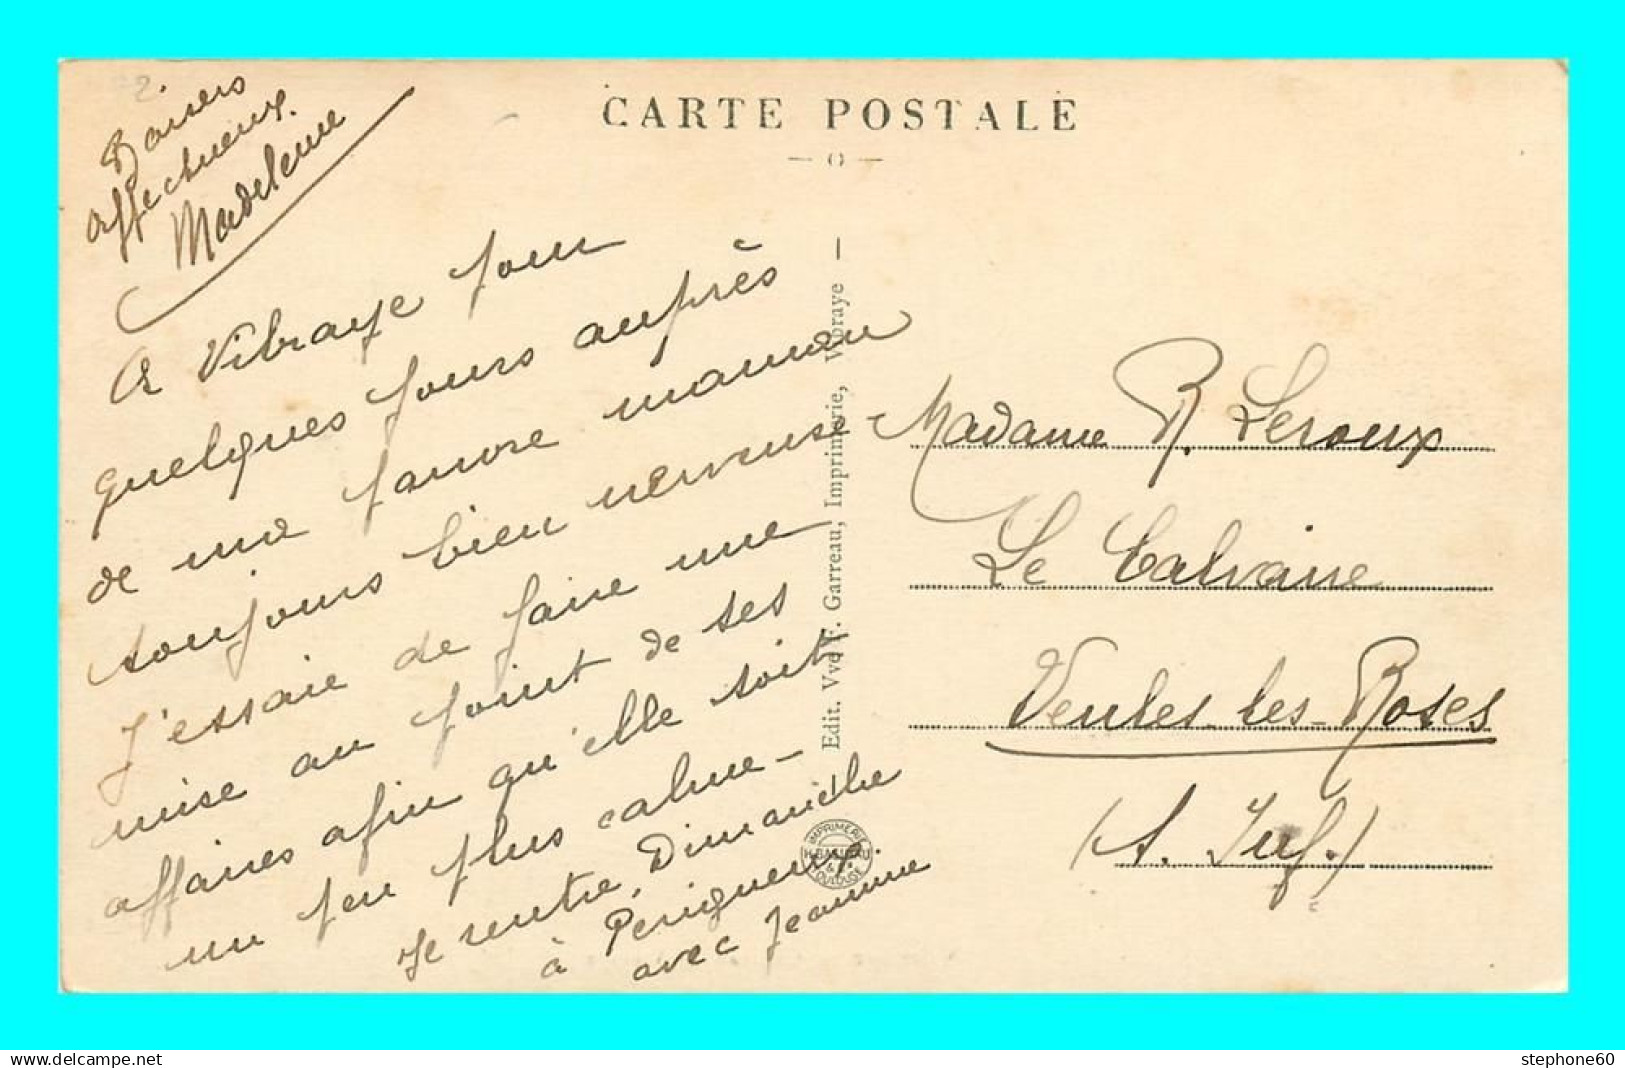 CARTE POSTALE
A Vibraye pour
quelques jours auprès
de ma pauvre maman
toujours bien nerveuse -
J'essaie de faire une
mise au point de ses
affaires afin qu'elle soit
un peu plus calme -
Je rentre Dimanche
à Perigueux.
avec Jeanne
Baisers
affectueux.
Madeleine
Edit. Vve F. Garreau, Imprimerie, Vibraye —
IMPRIMERIE
TOULOUSE
Madame R. Leroux
Le Calvaire
Veules-les-Roses
(S. Inf.)
delcampe.net
stephone60